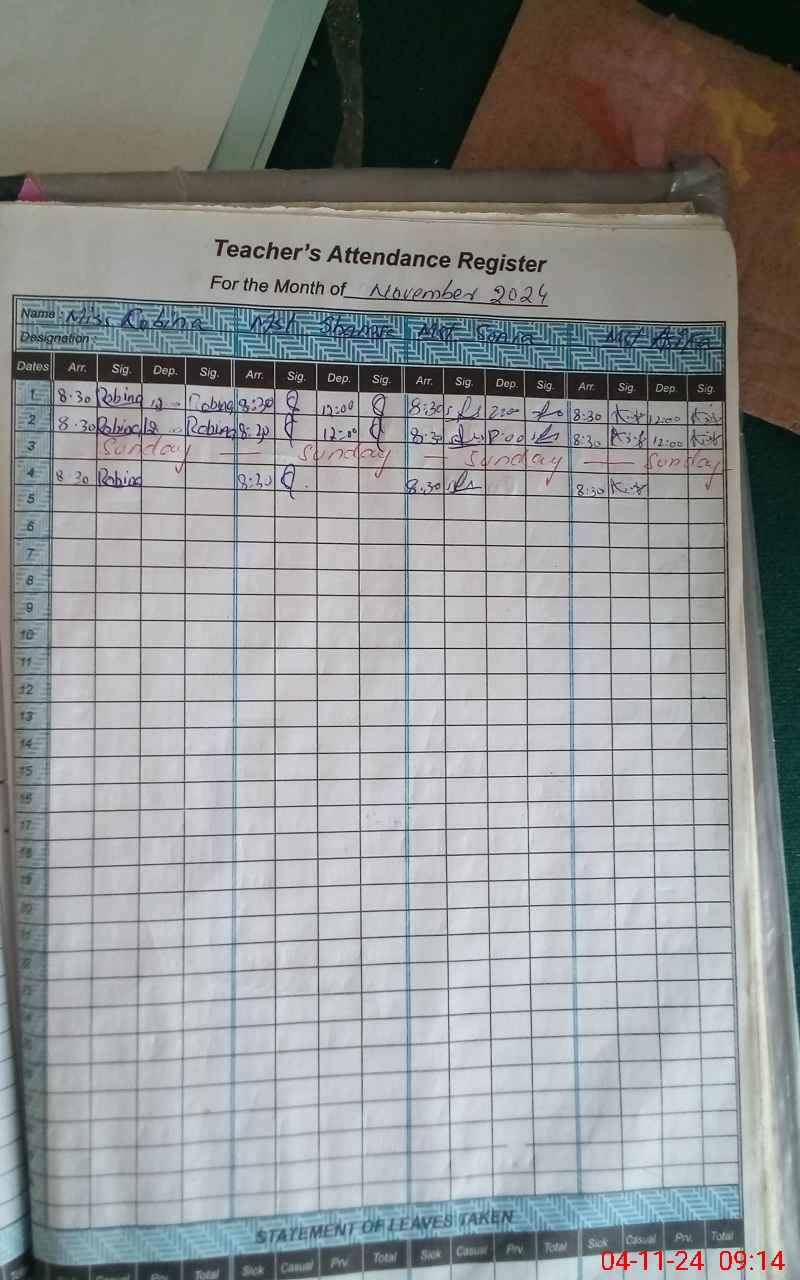 Teacher's Attendance Register
For the Month of November 2024
Name: Miss Robina Mst Mst Sonia Mst Asifa
Designation:
Dates Arr. Sig. Dep. Sig. Arr. Sig. Dep. Sig. Arr. Sig. Dep. Sig. Arr. Sig. Dep. Sig.
1 8.30 Robina 12 Robina 8:30 12:00 8:30 8:30 12:00
2 8.30 Robina 12 Robina 8:30 12:00 8:30 8:30 12:00
3 Sunday Sunday Sunday Sunday
4 8 30 Robina 8:30 8:30 8:30
5
6
7
8
9
10
11
12
13
14
15
16
17
18
19
STATEMENT OF LEAVES TAKEN
Casual Prv. Total Sick Casual Prv. Total Sick Casual Prv. Total Sick Casual Prv. Total
04-11-24 09:14